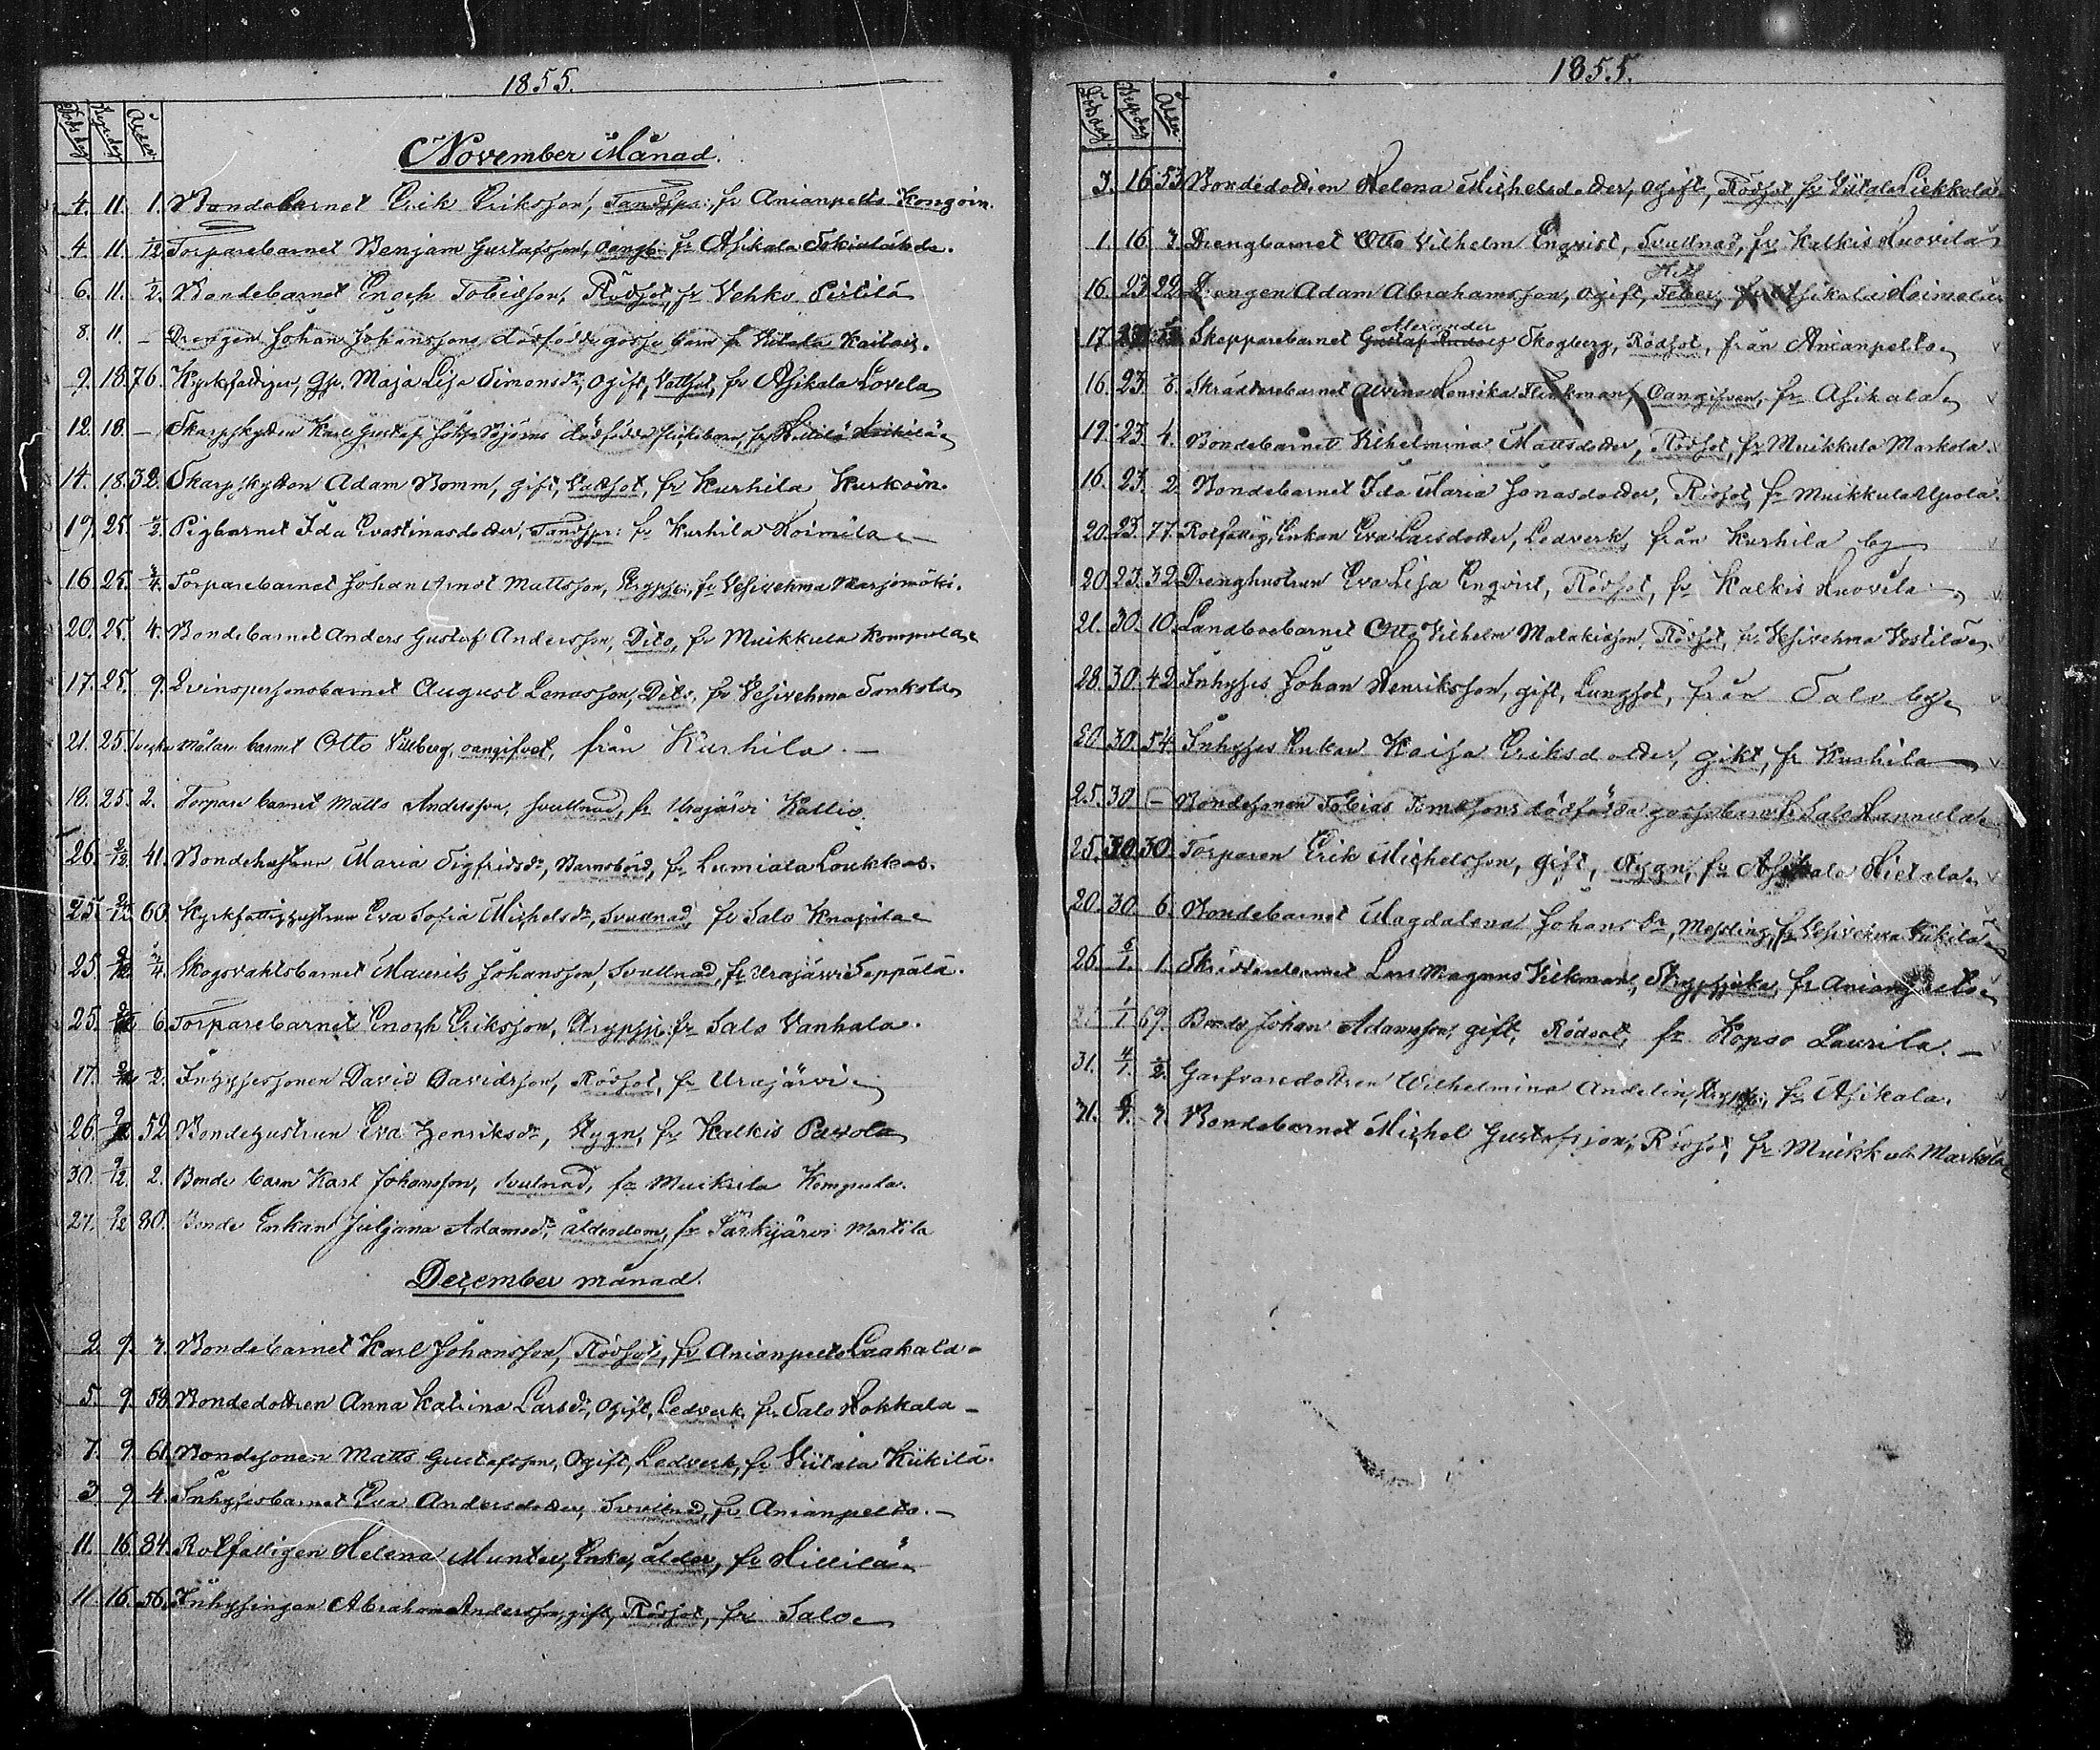 1855.
Död.dag Begr.dag Ålder
November Månad.
4. 11. 1. Bondebarnet Erik Eriksson, Tandspr: fr Anianpelto Kongoin.
4. 11. 1/12 Torparebarnet Benjam Gustafsson, oangif: fr Asikala
6. 11. 1/2. Bondebarnet Enoch Tobiasson, Rödsot, fr Vehko Pertilä
8. 11. — Drengen Johan Johanssons dödfödde gosse barn fr Viitala
9. 18. 76. Kyrkfattiga, Maja Lisa Simonsdr, ogift, Vattsot, fr Asikala Lovela
12. 18. — Skarpskytten Karl Gustaf Björns dödfödda flickebarn, fr Hillilä
14. 18. 32. Skarpskytten Adam Bomm, gift, Vattsot, fr Kurhila Kurkoin.
19. 25. 1/2. Pigbarnet Ida Evastinasdotter, Tandspr: fr Kurhila Hoimila
16. 25. Torparebarnet Johan Arndt Mattsson, fr Vesivehma Marjomäki.
20. 25. 4. Bondebarnet Anders Gustaf Andersson, Dito, fr Muikkula Kompula
17. 25. 9. Qvinspersonsbarnet August Lenasson, Dito, fr Vesivehma
21. 25. 1 vecka Målare barnet Otto Villberg, oangifvet, från Kurhila. —
18. 25. 2. Torpare barnet Matts Andersson, svullnad, fr Urajärvi Kallio.
26. 2/12. 41. Bondehustrun Maria Sigfridsdr, Barnsbörd, fr Lumiala Loukkas.
25. 2/12. 60. Kyrkfattighustrun Eva Sofia Michelsdr, Svullnad, fr Salo Knapila
25. Skogsvaktsbarnet Maurits Johansson, Svullnad, fr Urajärvi Seppälä.
25. 6. Torparebarnet Enoch Eriksson, fr Salo Vanhala.
17. Inhysessonen David Davidsson, Rödsot, fr Urajärvi
26. 52. Bondehustrun Eva Henriksdr, Stygn, fr Kalkis Pavola
30. 9/12. 2. Bonde barn Karl Johansson, svulnad, fr Muikkula Kompula.
27. 9/12 80. Bonde Enkan Juljana Adamsdr, ålderdom, fr Särkijärvi Marttila
December månad.
2. 9. 3. Bondebarnet Karl Johansson, Rödsot, fr Anianpelto Laakala
5. 9. 59. Bondedottren Anna Katrina Larsdr, Ogift, Ledverk, fr Salo Hokkala —
7. 9. 61. Bondesonen Matts Gustafsson, Ogift, Ledverk, fr Viitala Kiikilä.
3 9. 4. Inhysesbarnet Eva Andersdotter, Svullnad, fr Anianpelto. —
11. 16. 84. Rotfattigen Helena Munter, Enka, ålder, fr Hillilä
11. 16. 56. Inhysingen Abraham Andersson, gift, Rödsot, fr Salo
1855.
Död.dag Begr.dag Ålder
3. 16. 53. Bondedottren Helena Michelsdotter, ogift, Rödsot, fr Viitala Liekkola
1. 16. 3. Drengbarnet Otto Vilhelm Enqvist, Svullnad, fr Kalkis Huovila
16. 23 22. Drengen Adam Abrahamsson, ogift, Feber, fr Asikala Hoimola
17. Alexander
Skepparebarnet Gustaf Skogberg, Rödsot, från Anianpelto
16. 23. Skräddarebarnet Alvina Henrika Flinkman, Oangifven, fr Asikala
19. 23. 4. Bondebarnet Vilhelmina Mattsdotter, Rödsot, fr Muikkula Markola
16. 23. 2. Bondebarnet Ida Maria Jonasdotter, Rödsot, fr Muikkula Upola
20. 23. 77. Rotfattig Enkan Eva Larsdotter, Ledverk, från Kurhila by
20. 23. 32. Drenghustrun Eva Lisa Enqvist, Rödsot, fr Kalkis Huovila
21. 30. 10. Landboebarnet Otto Vilhelm Malakiasson, Rödsot, fr Vesivehma
28. 30. 42. Inhyses Johan Henriksson, gift, Lungsot, från Salo by
20 30. 54. Inhyses Enkan Kaisa Eriksdotter, gikt, fr Kurhila
25. 30 — Bondesonen Tobias dödfödda gossebarn fr Salo Hannula
25. 30. 30. Torparen Erik Michelsson, gift, Stygn, fr Asikala Hietala
20. 30. 6. Bondebarnet Magdalena Johansdr, Messling, fr Vesivehma Kiikilä
26. 6/1. 1. Lars Magnus Vikman, Strypsjuka, fr Anianpelto
1/1 69. Bonde Johan Adamsson, gift, Rödsot, fr Kopso Laurila. —
31. 4/1. 1/2. Garfvaredottren Wilhelmina Andelin, fr Asikala.
31. 3. Bondebarnet Michel Gustafsson, Rödsot, fr Muikkula Markola